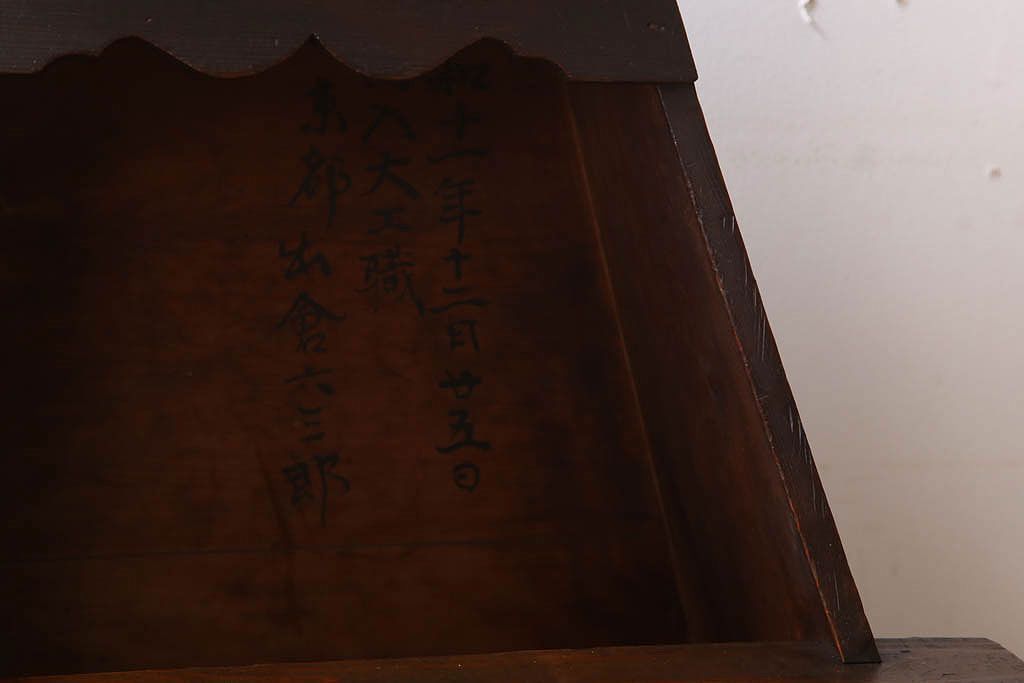 和十一年十二月廿五日
入大工職
京都出倉六三郎